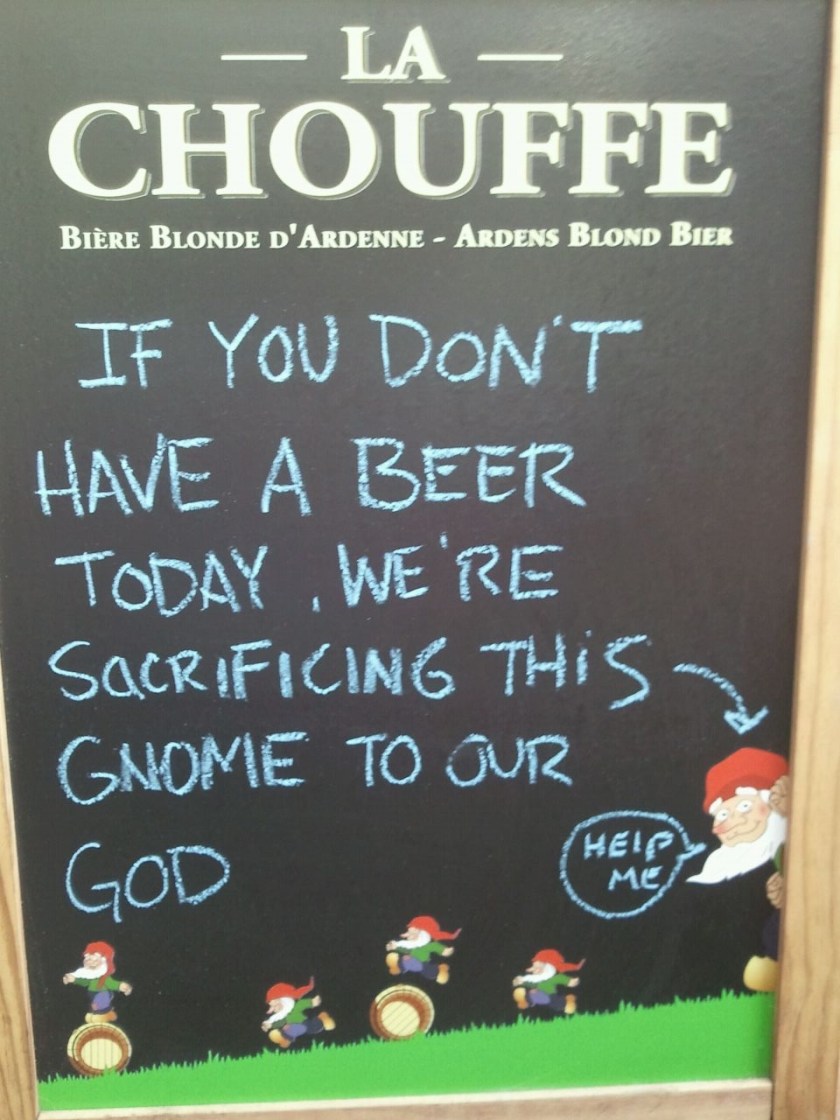 LA
CHOUFFE
BIÈRE BLONDE D'ARDENNE - ARDENS BLOND BIER
IF YOU DON'T
HAVE A BEER
TODAY, WE'RE
SACRIFICING THIS
GNOME TO OUR
GOD
HELP
ME